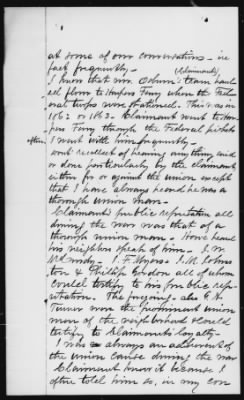 at some of our conversations - in
fact frequently -
(Claimants)
I know that Mr. Osburn's team haul
ed flour to Harpers Ferry when the Fed
eral troops were stationed. This was in
1862 or 1863. Claimant went to Har
pers Ferry through the Federal pickets
often I went with him frequently -
dont recollect of hearing anything said
or done particularly by the claimant
either for or against the union except
that I have always heard he was a
thorough union man -
Claimants public reputation all
during the war was that of a
thorough union man. Have heard
his neighbors speak of him. J. C.
I. F. Myers - J. M. Johns
ton & Phillip Gordon all of whom
could testify to his public rep
utation. The foregoing also
were the prominent union
men of the neighborhood & could
testify to Claimants loyalty -
I was always an adherent of
the union cause during the war
Claimant knew it because I
often told him so, in my con